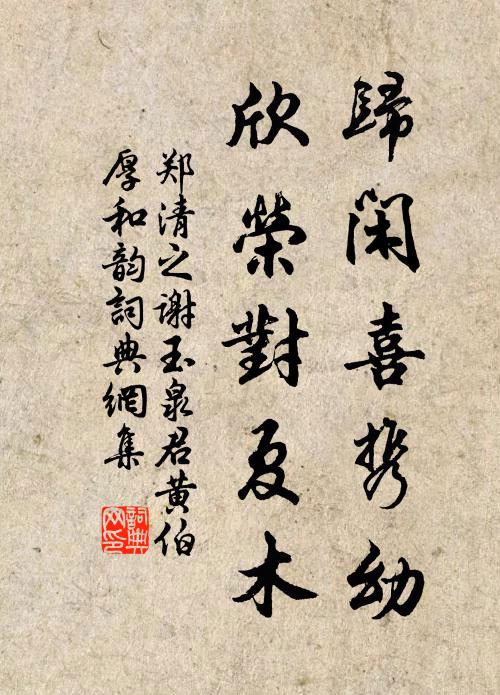 歸閑喜携幼
欣榮對夏木
郑清之谢玉泉君黄伯
厚和韵詞典網集
詞典网印